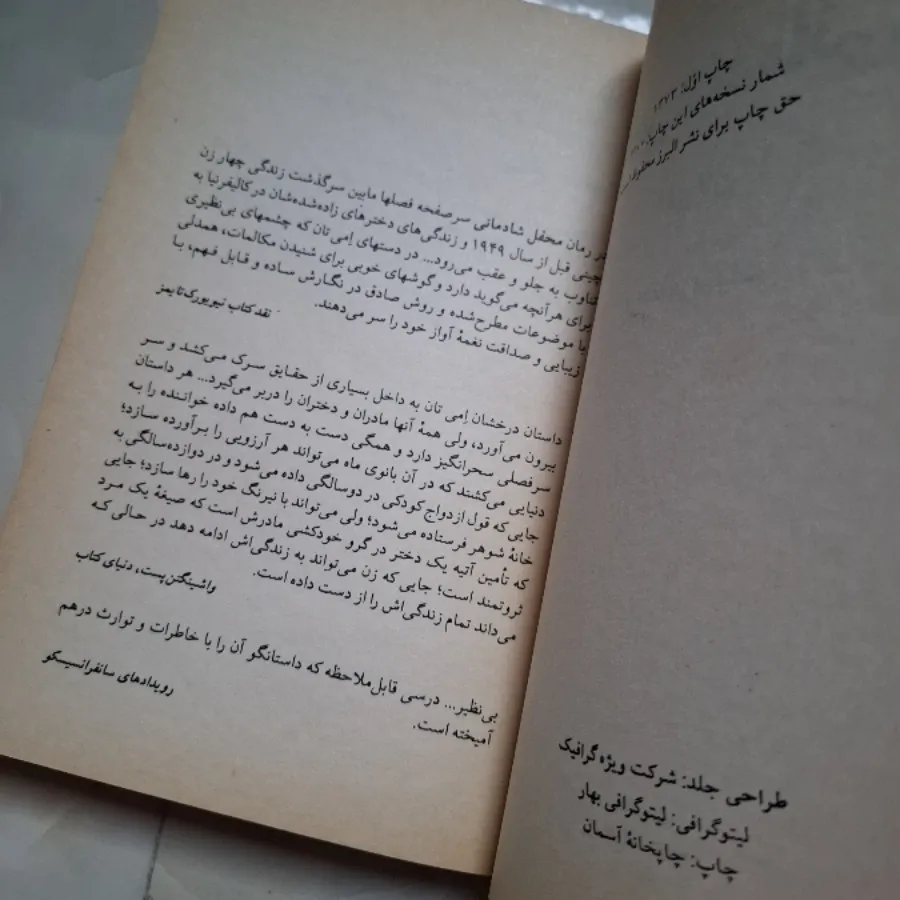 چاپ اوّل: ۱۳۷۳
شمار نسخه‌های این چاپ:
حق چاپ برای نشر البرز محفوظ است.
طراحی جلد: شرکت ویژه گرافیک
لیتوگرافی: لیتوگرافی بهار
چاپ: چاپخانهٔ آسمان
در رمان محفل شادمانی سرصفحه فصلها مابین سرگذشت زندگی چهار زن
چینی قبل از سال ۱۹۴۹ و زندگی‌های دخترهای زاده‌شده‌شان در کالیفرنیا به
تناوب به جلو و عقب می‌رود... در دستهای اِمی تان که چشمهای بی‌نظیری
برای هرآنچه می‌گوید دارد و گوشهای خوبی برای شنیدن مکالمات، همدلی
با موضوعات مطرح‌شده و روش صادق در نگارش ساده و قابل فهم، با
زیبایی و صداقت نغمهٔ آواز خود را سر می‌دهند.
نقد کتاب نیویورک تایمز
داستان درخشان اِمی تان به داخل بسیاری از حقایق سرک می‌کشد و سر
بیرون می‌آورد، ولی همهٔ آنها مادران و دختران را دربر می‌گیرد... هر داستان
سرفصلی سحرانگیز دارد و همگی دست به دست هم داده خواننده را به
دنیایی می‌کشند که در آن بانوی ماه می‌تواند هر آرزویی را برآورده سازد؛
جایی که قول ازدواج کودکی در دوسالگی داده می‌شود و در دوازده‌سالگی به
خانهٔ شوهر فرستاده می‌شود؛ ولی می‌تواند با نیرنگ خود را رها سازد؛ جایی
که تأمین آتیه یک دختر در گرو خودکشی مادرش است که صیغهٔ یک مرد
ثروتمند است؛ جایی که زن می‌تواند به زندگی‌اش ادامه دهد در حالی که
می‌داند تمام زندگی‌اش را از دست داده است.
واشینگتن پست، دنیای کتاب
بی‌نظیر... درسی قابل‌ملاحظه که داستانگو آن را با خاطرات و توارث درهم
آمیخته است.
رویدادهای سانفرانسیسکو